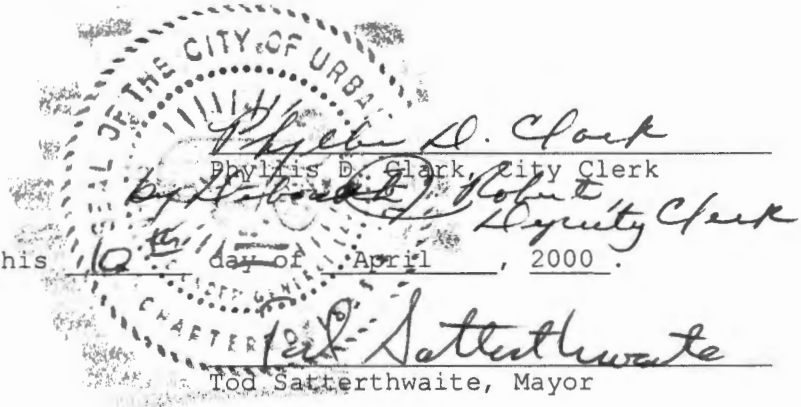 SEAL OF THE CITY OF URBA
Phyllis D. Clark
Phyllis D. Clark, City Clerk
by Deborah J. Roberts,
Deputy Clerk
his 10th day of April, 2000.
CHARTER
Tod Satterthwaite
Tod Satterthwaite, Mayor